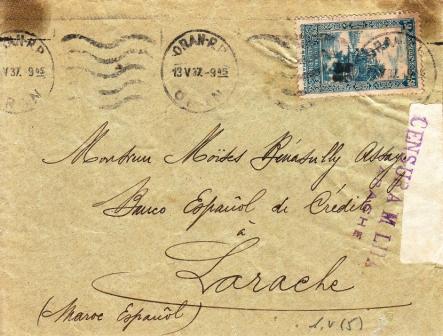 ORAN-R.P
V 37. 9 45
ORAN
ORAN-R.P
13 V 37.-9 45
ORAN
CENSURA MILITAR
LARACHE
Monsieur Moïses Bénasully Assayag
Banco Español de Crédito
à
Larache
(Maroc Español)